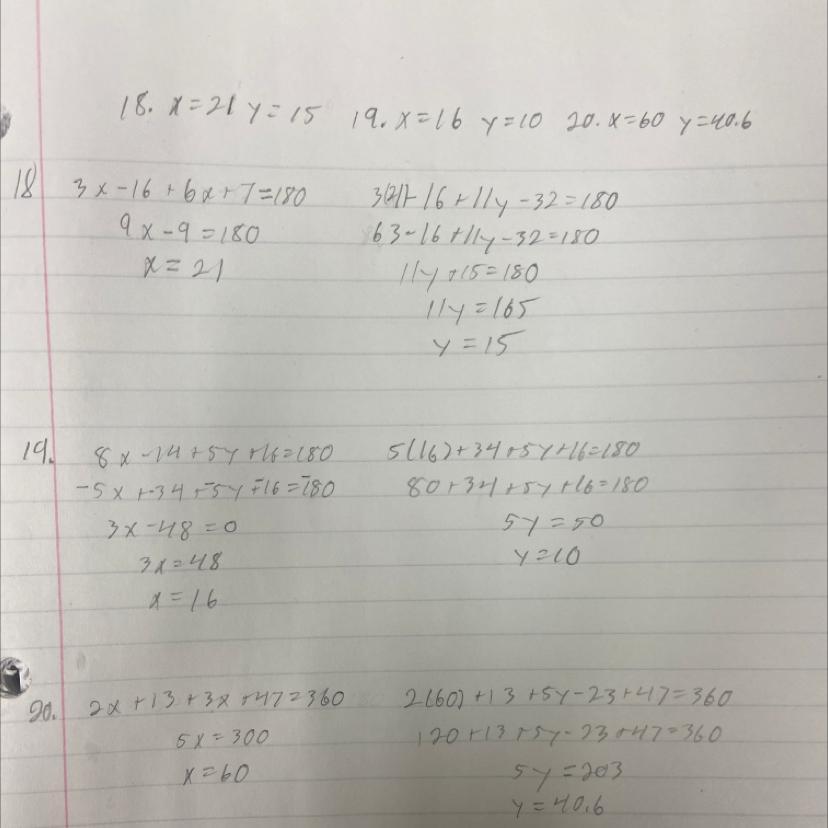 18. x=21 y=15 19. x=16 y=10 20. x=60 y=40.6
18 3x-16+6x+7=180 3(21)-16+11y-32=180
9x-9=180 63-16+11y-32=180
x=21 11y+15=180
11y=165
y=15
19. 8x-14+5y+16=180 5(16)+34+5y+16=180
-5x+-34+-5y+-16=-180 80+34+5y+16=180
3x-48=0 5y=50
3x=48 y=10
x=16
20. 2x+13+3x+47=360 2(60)+13+5y-23+47=360
5x=300 120+13+5y-23+47=360
x=60 5y=203
y=40.6